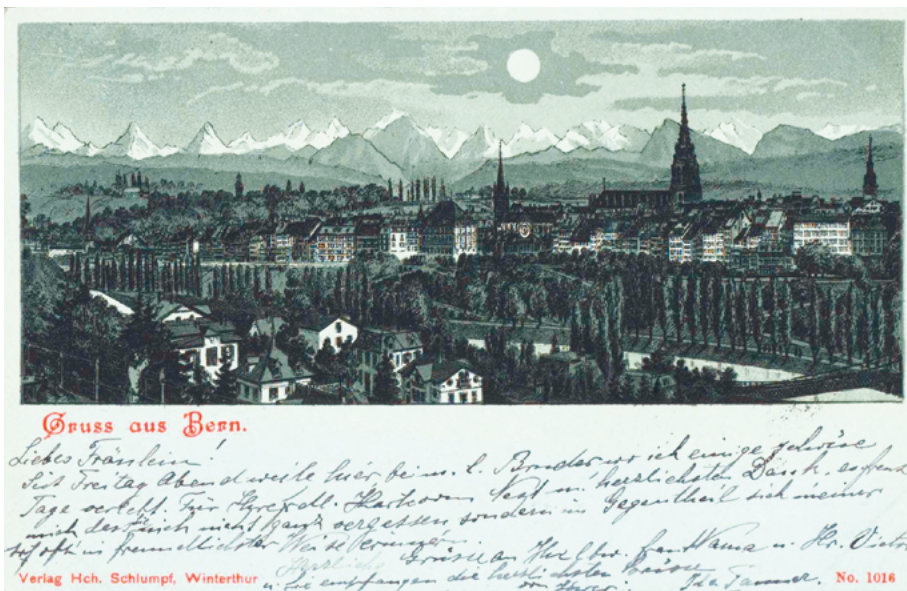 Gruss aus Bern.
Liebes Fräulein!
Seit Freitag Abend weile hier, bei m. l. Bruder wo ich einige schöne
Tage verlebt. Für Ihre frdl. Karte von herzlichsten Dank, es freut
mich dass Sie mich nicht ganz vergessen sondern im Gegentheil sich meiner
so oft in freundlichster Weise erinnern.
Herzliche Grüsse an Ihre Frau Mama u. Hr. Victor
u. Sie empfangen die herzlichsten Grüsse
von Ihrer Ida Tanner.
Verlag Hch. Schlumpf, Winterthur
No. 1016